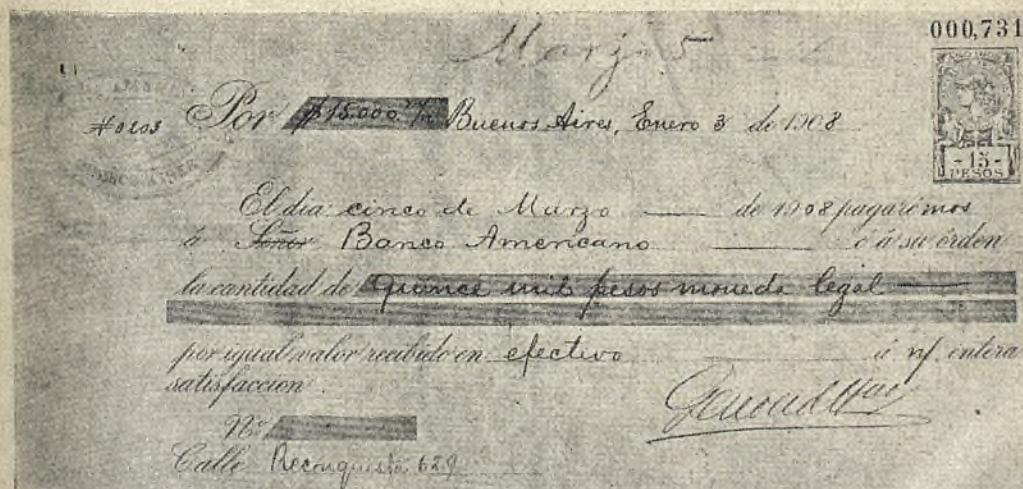 000,731
Marzo 5
#0203 Por $15.000 m/n Buenos Aires, Enero 3 de 1908
- 15 -
PESOS
El dia cinco de Marzo de 1908 pagarémos
á Señor Banco Americano ó á su órden
la cantidad de Quince mil pesos moneda legal
por igual valor recibido en efectivo á n/ entera
satisfaccion
No
Calle Reconquista 629